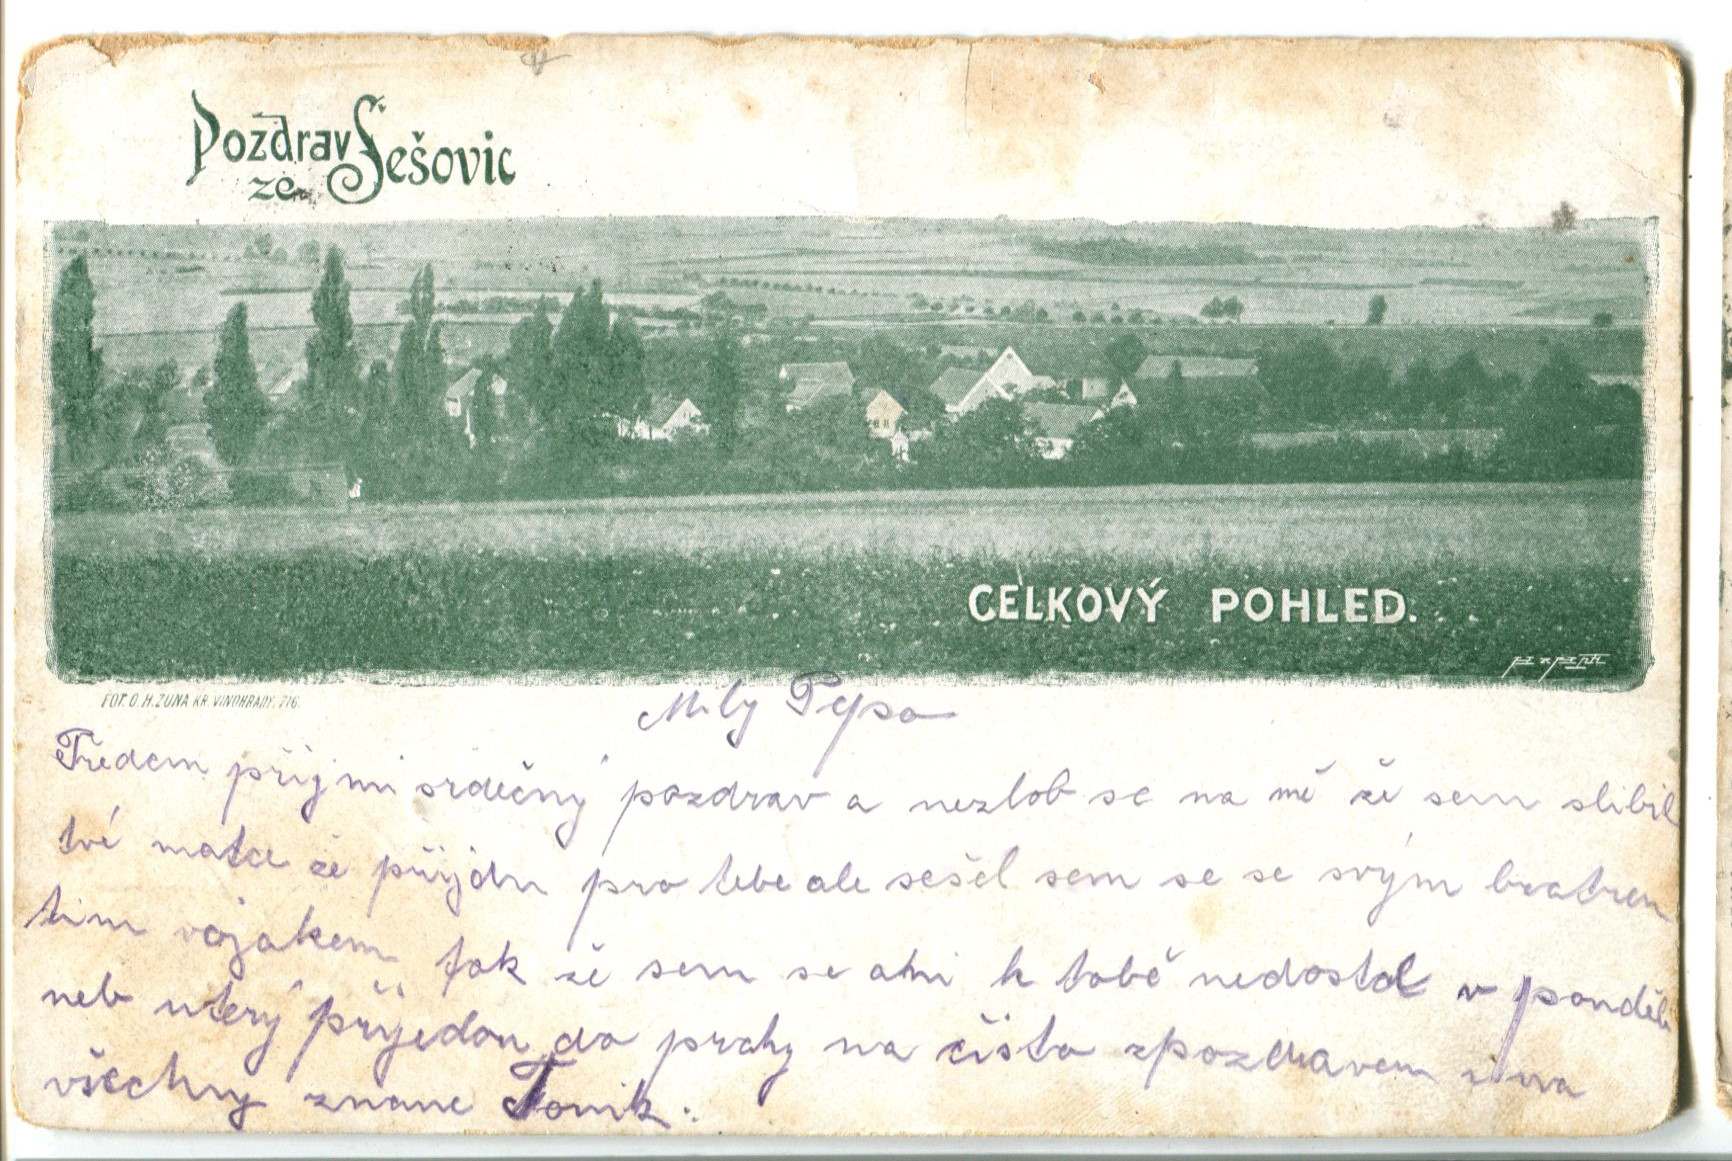 Pozdrav
ze Sešovic
CELKOVÝ POHLED.
FOT. O. H. ZUNA KR. VINOHRADY, 716.
Milý Pepo
Předem příjmi srdečný pozdrav a nezlob se na mě že sem slibil
tvé matce že příjdu pro tebe ale sešel sem se se svým bratrem
tím vojákem tak že sem se ani k tobě nedostal v ponděli
neb uterý přijedou do prahy na čisto spozdravem i na
všechny znane Toník.